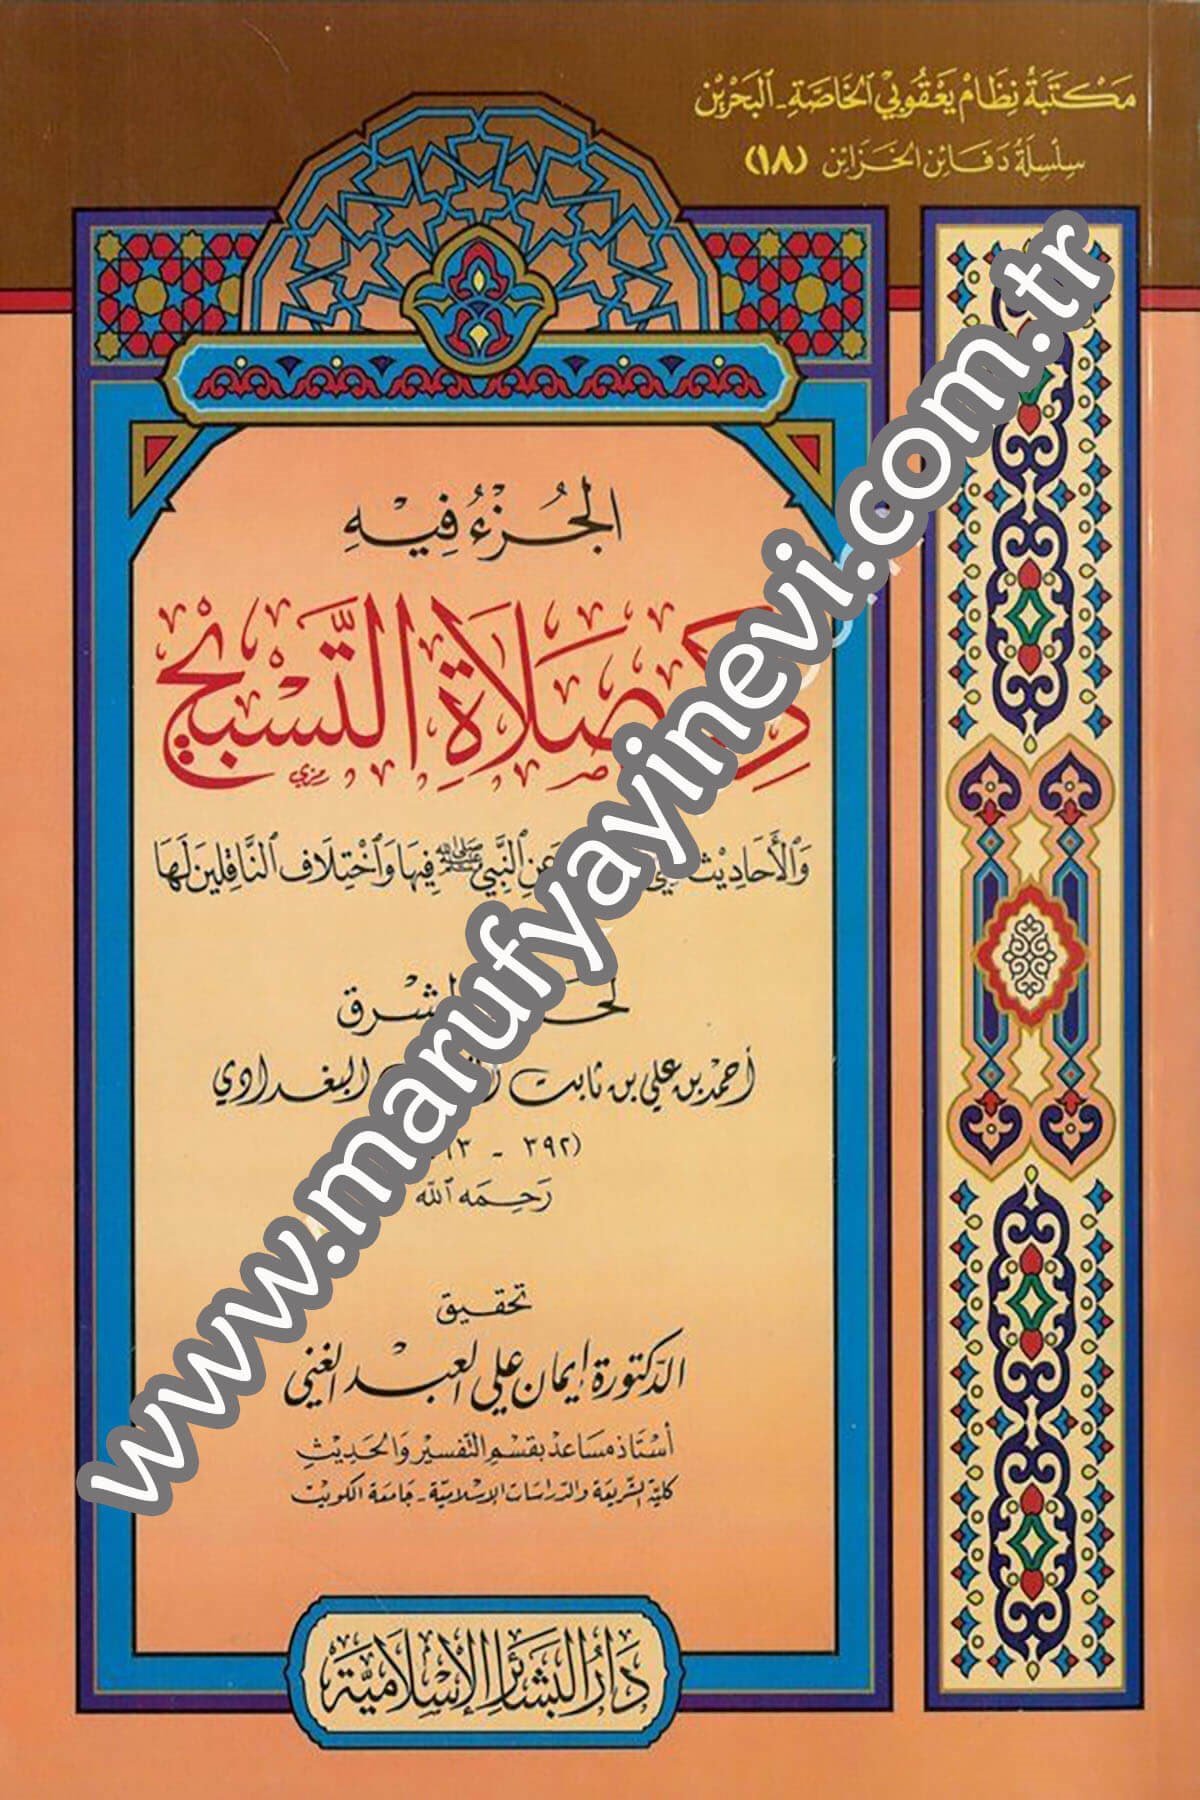 مكتبة نظام يعقوبي الخاصة - البحرين
سلسلة دفائن الخزائن (١٨)
الجزء فيه
صلاة التسبيح
والأحاديث عن النبي ﷺ فيها واختلاف الناقلين لها
المشرق
أحمد بن علي بن ثابت البغدادي
(٣٩٢ -
رحمه الله
تحقيق
الدكتورة إيمان علي العبد الغني
أستاذ مساعد بقسم التفسير والحديث
كلية الشريعة والدراسات الإسلامية - جامعة الكويت
دار البشائر الإسلامية
www.marufyayinevi.com.tr